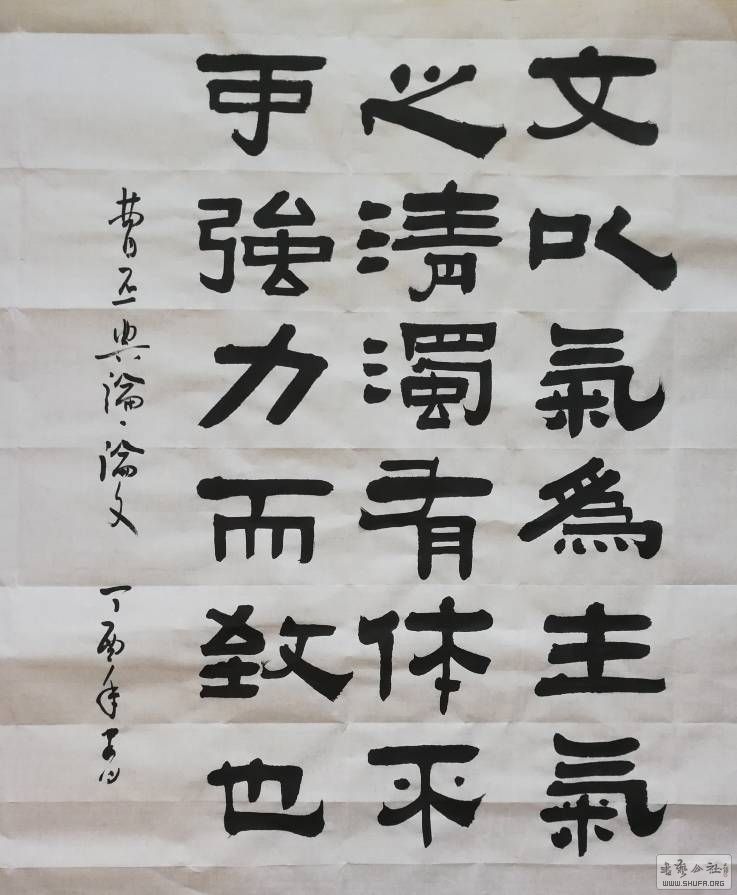 文以氣爲主氣
之清濁有体不
可強力而致也
曹丕典論·論文 丁酉年
書藝公社
WWW.SHUFA.ORG